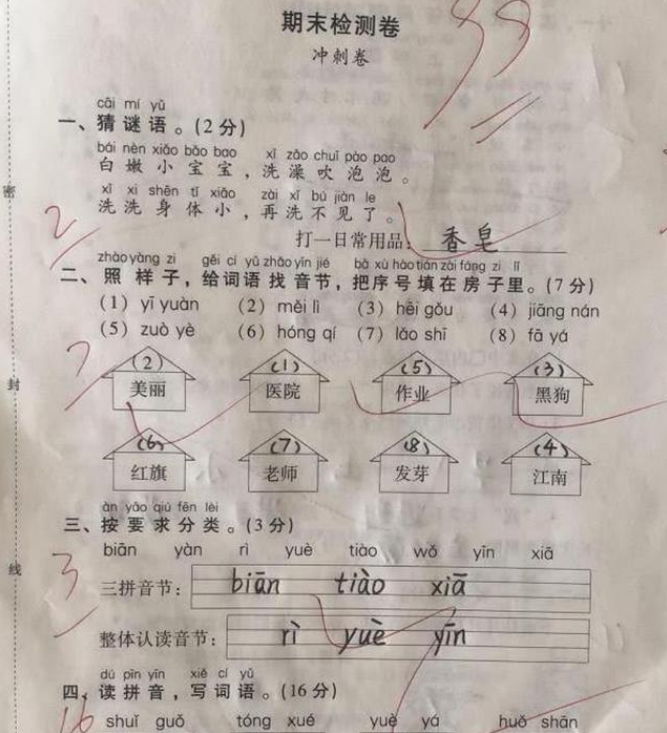 期末检测卷
冲刺卷
cāi mí yǔ
一、猜谜语。(2分)
bái nèn xiǎo bǎo bao xǐ zǎo chuī pào pao
白嫩小宝宝，洗澡吹泡泡。
xǐ xi shēn tǐ xiǎo zài xǐ bú jiàn le
洗洗身体小，再洗不见了。
打一日常用品：香皂
zhào yàng zi gěi cí yǔ zhǎo yīn jié bǎ xù hào tián zài fáng zi lǐ
二、照样子，给词语找音节，把序号填在房子里。(7分)
(1) yī yuàn (2) měi lì (3) hēi gǒu (4) jiāng nán
(5) zuò yè (6) hóng qí (7) lǎo shī (8) fā yá
(2) (1) (5) (3)
美丽 医院 作业 黑狗
(6) (7) (8) (4)
红旗 老师 发芽 江南
àn yāo qiú fēn lèi
三、按要求分类。(3分)
biān yàn rì yuè tiào wǒ yīn xiā
三拼音节：biān tiào xiā
整体认读音节：rì yuè yīn
dú pīn yīn xiě cí yǔ
四、读拼音，写词语。(16分)
shuǐ guǒ tóng xué yuè yá huǒ shān
密
封
线
2
7
3
16